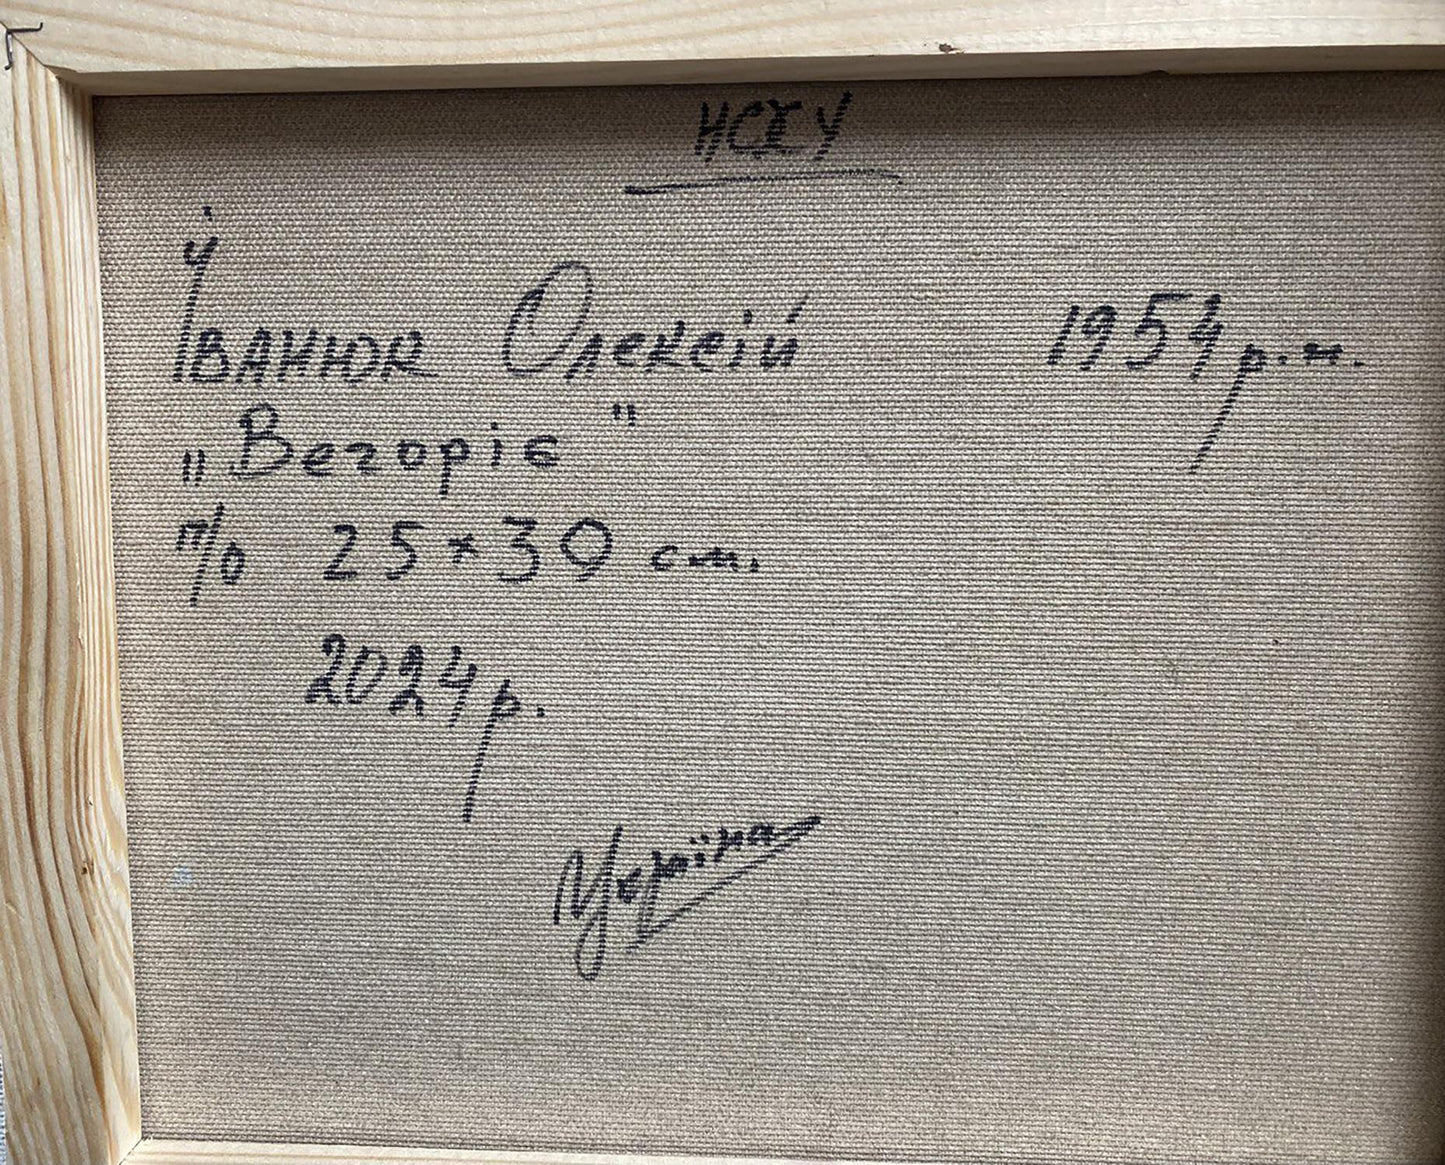 НСХУ
Іванюк Олексій 1954 р.н.
„Вегоріє"
п/о 25×30 см.
2024 р.
Україна